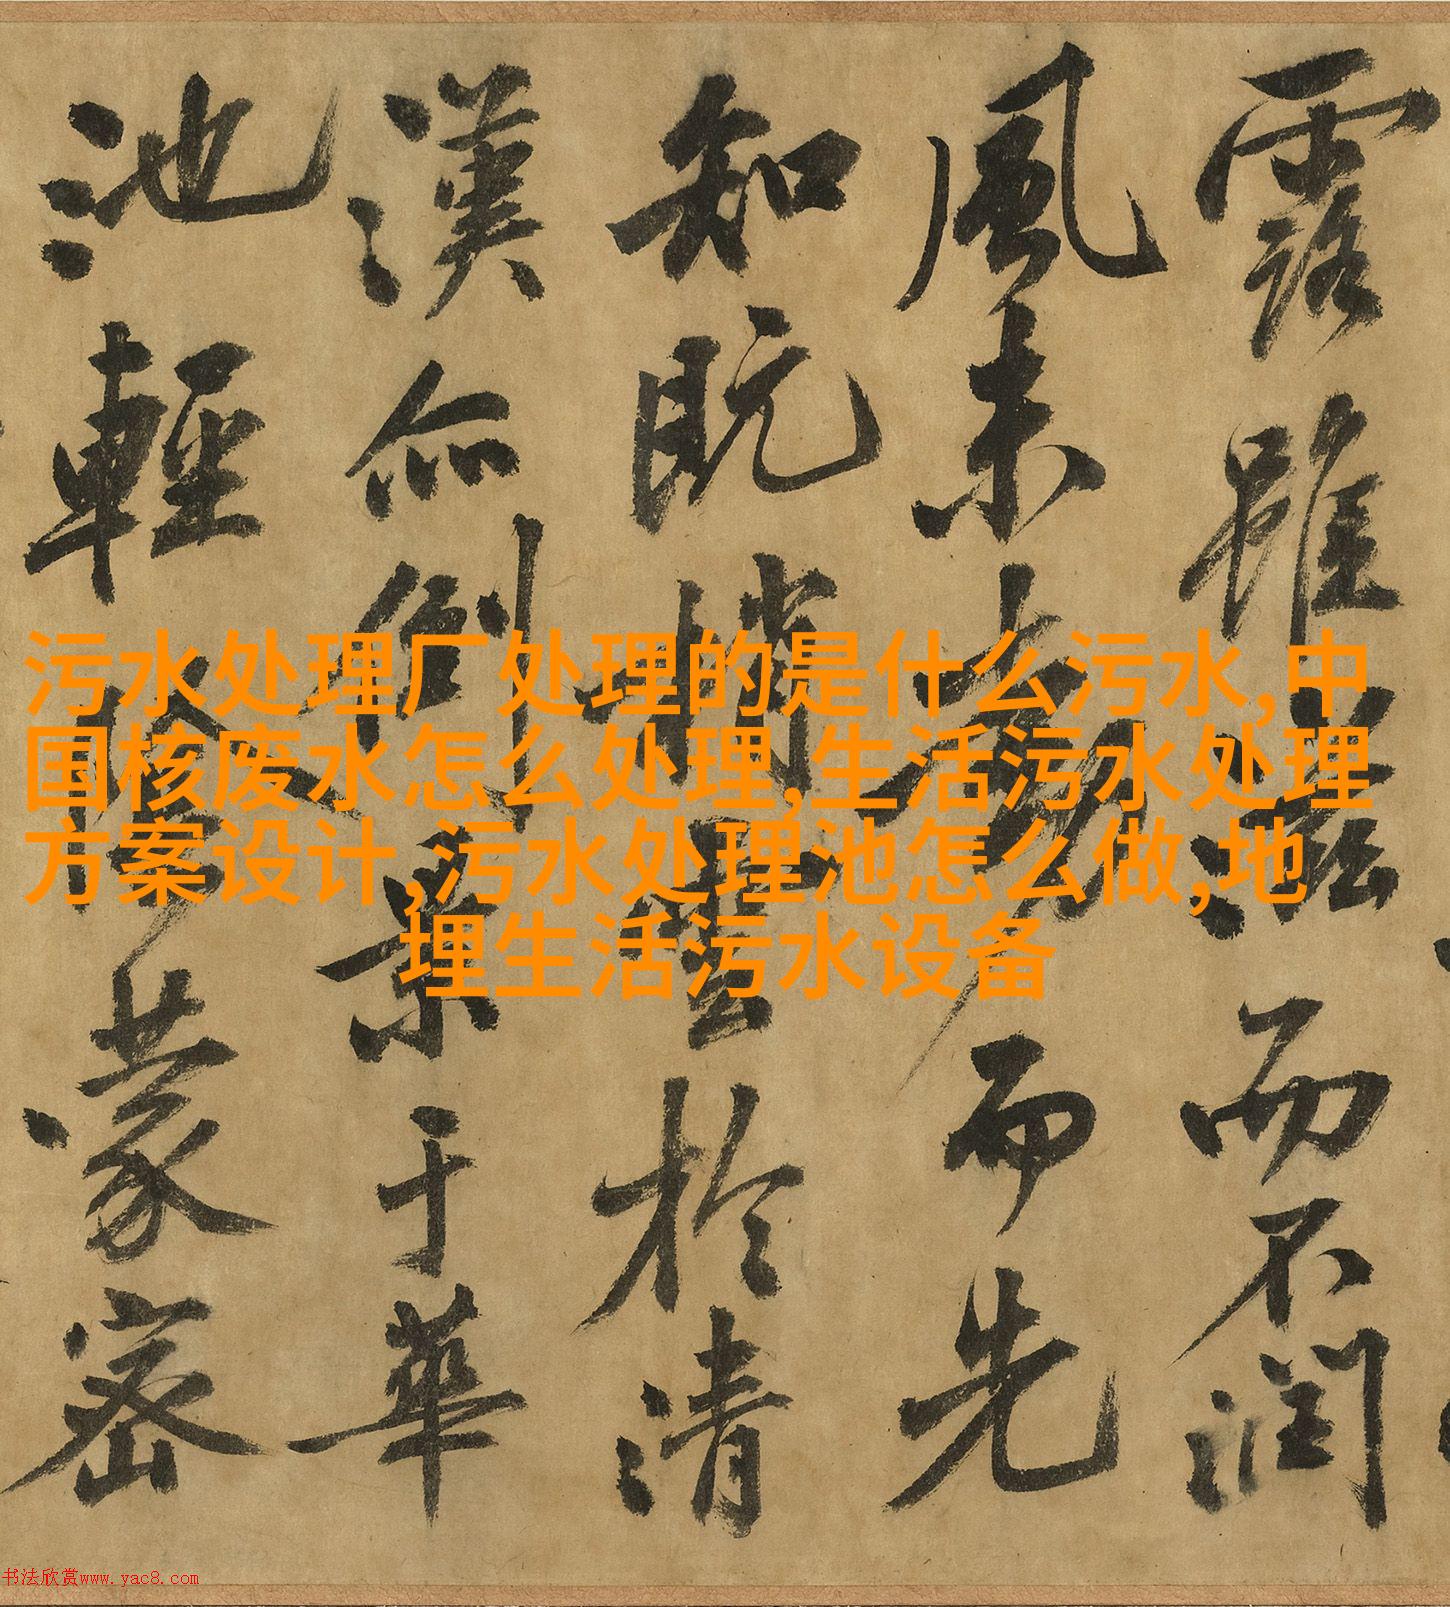 露雖滋而不潤
風未動而先
知既梢雲於清
漢亦倒景于華
池輕陰蒙密
污水处理厂处理的是什么污水,中
国核废水怎么处理,生活污水处理
方案设计,污水处理池怎么做,地
埋生活污水设备
书法欣赏www.yac8.com